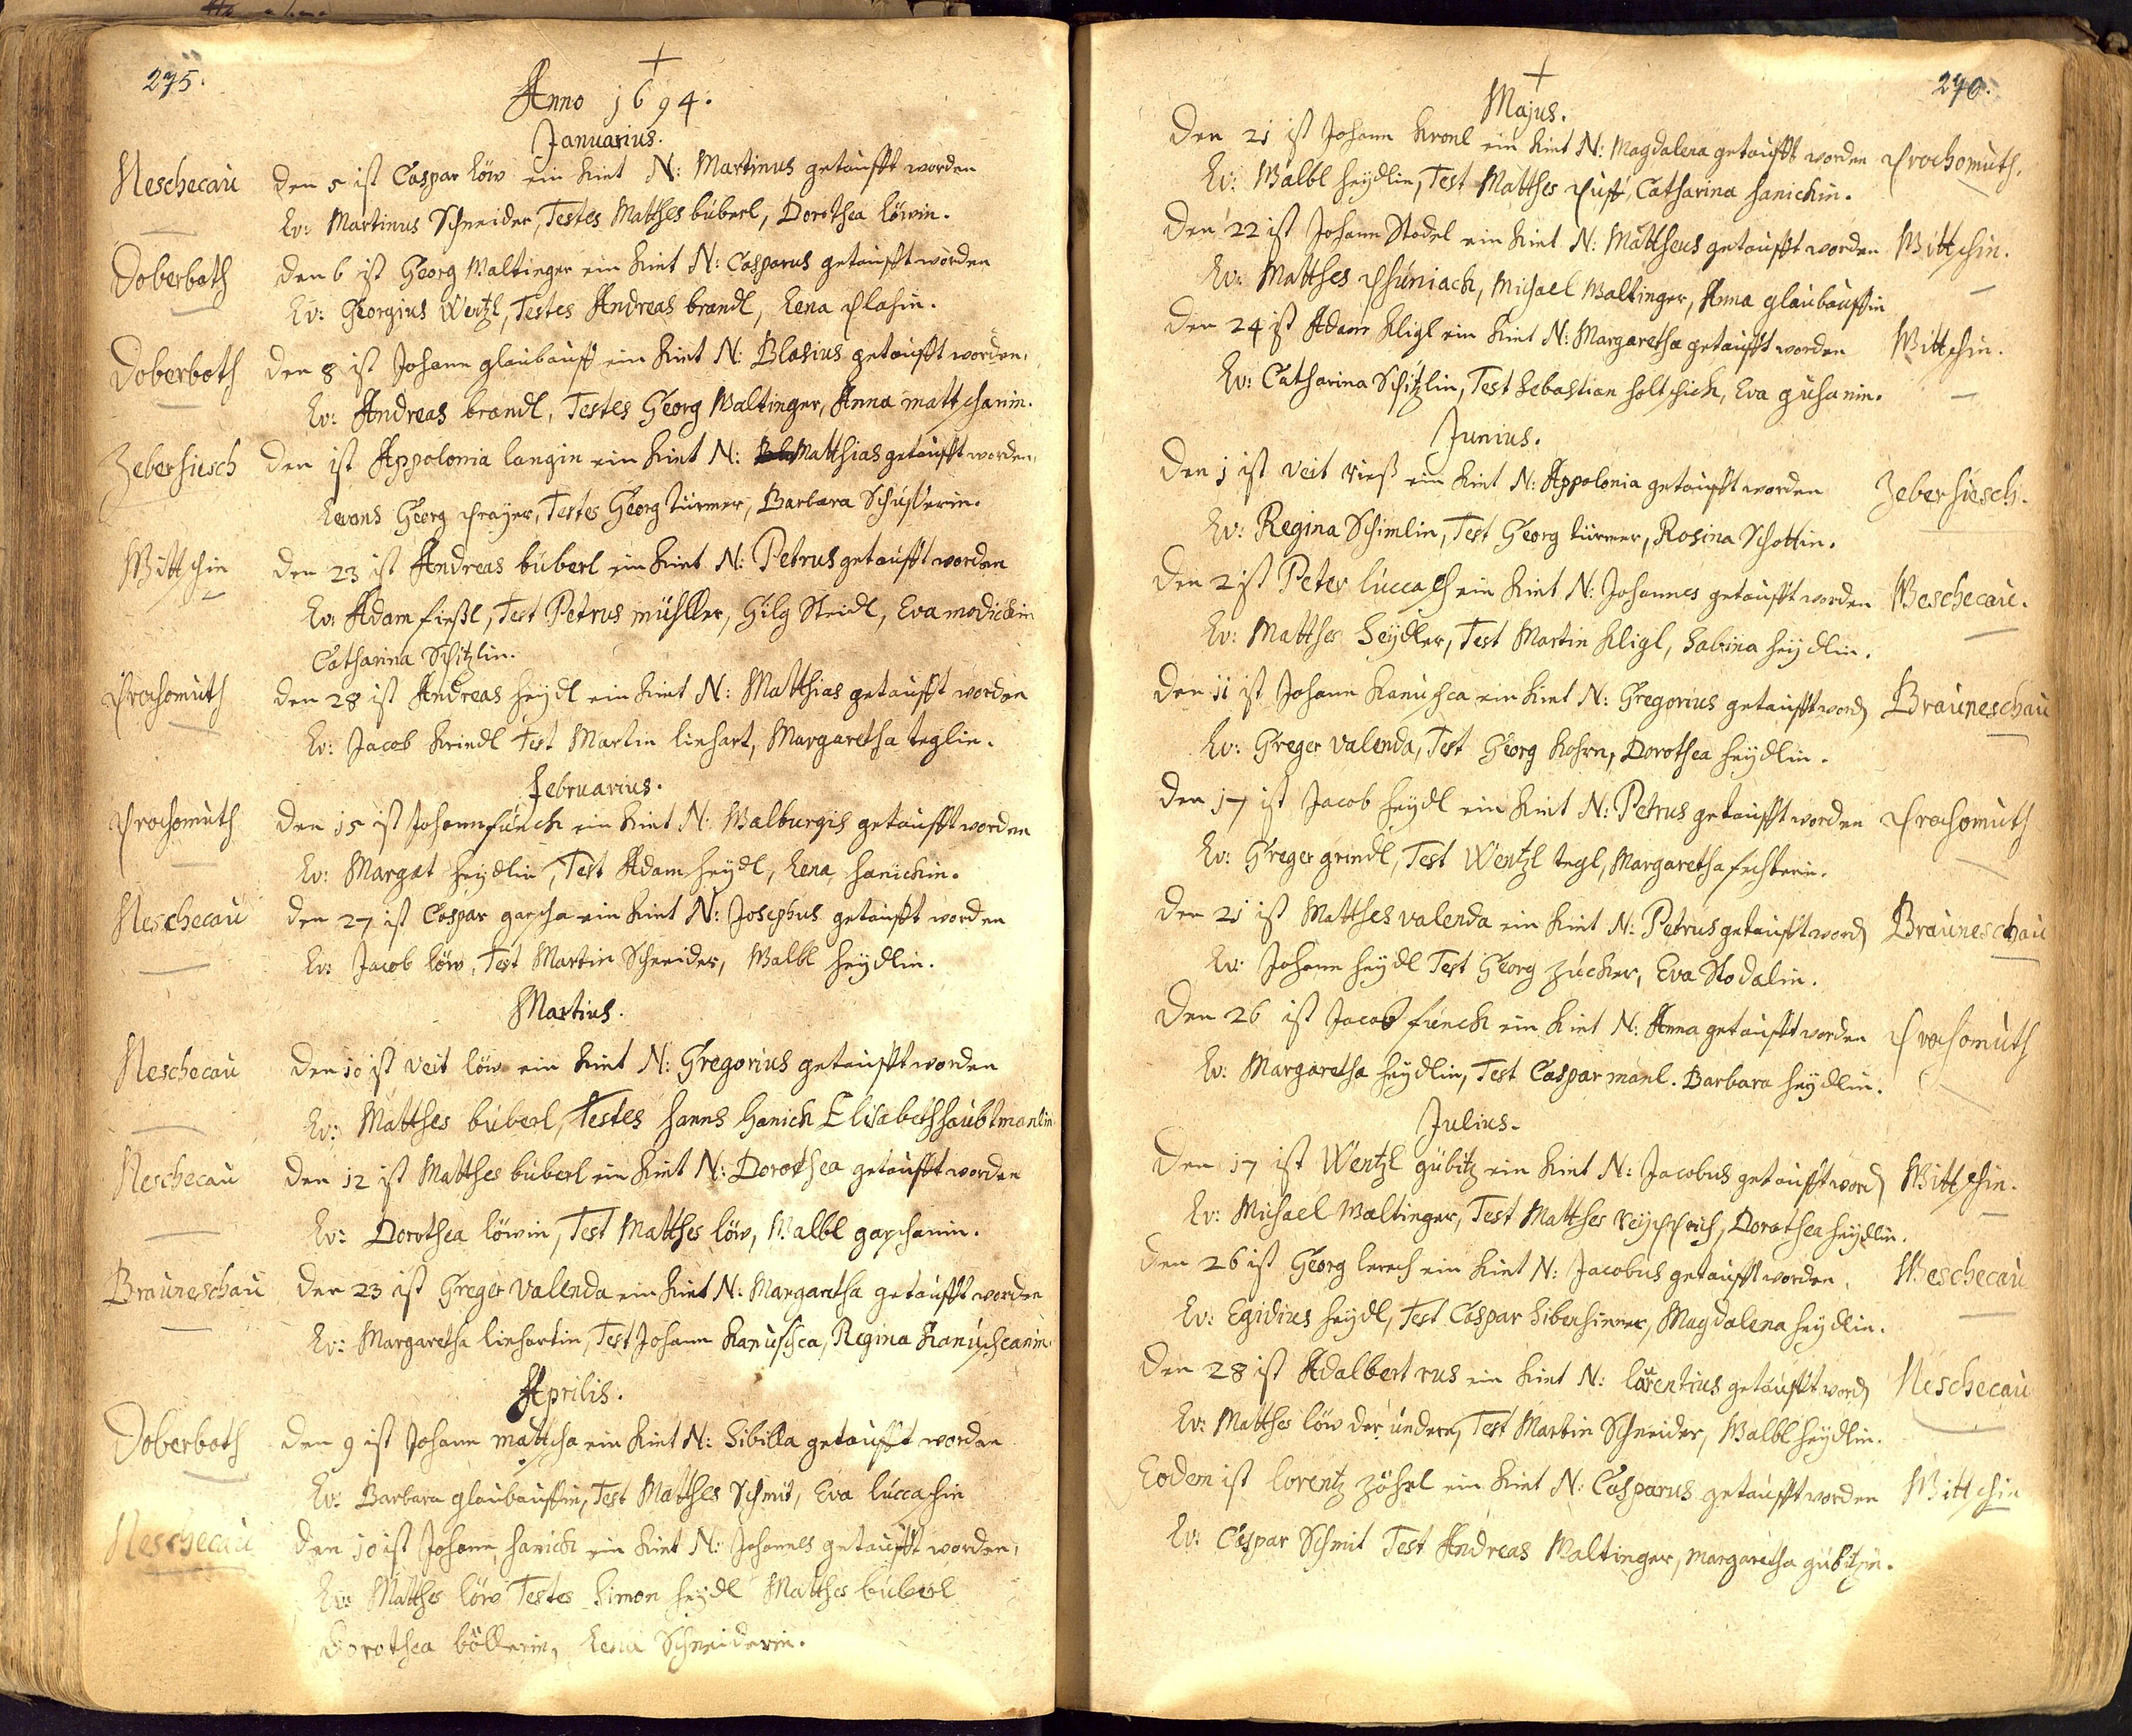 275.
Anno 1694.
Januarius.
Neschecau den 5 ist Caspar löw ein Kint N: Martinus getaufft worden
Lv: Martinus Schneider, Testes Matthes buberl, Dorothea löwin.
Doberbath den 6 ist Georg Waltinger ein Kint N: Casparus getaufft worden
Lv: Georgius Wentzl, Testes Andreas brandl, Lena
Doberboth den 8 ist Johann glaubauff ein Kint N: Blasius getaufft worden,
Lv: Andreas brandl, Testes Georg Waltinger, Anna mattschanin.
Zeberhiesch den ist Appolonia langin ein Kint N: Matthias getaufft worden,
Levans Georg prayer, Testes Georg türmer, Barbara Schusterin.
Wittschin den 23 ist Andreas buberl ein Kint N: Petrus getaufft worden
Lv: Adam fießl, Test Petrus mühller, Gilg Steidl, Eva modickin
Catharina Schitzlin.
Prochomuth den 28 ist Andreas heÿdl ein Kint N: Matthias getaufft worden
Lv: Jacob Kriendl Test Martin linhart, Margaretha teglin.
Februarius.
Prochomuth den 15 ist Johann funck ein Kint N: Walburgis getaufft worden
Lv: Margat heÿdlin, Test Adam heÿdl, Lena hanickin.
Neschecau den 27 ist Caspar garscha ein Kint N: Josephus getaufft worden
Lv: Jacob löw, Test Martin Schneider, Walbl heÿdlin.
Martius.
Neschecau den 10 ist Veit löw ein Kint N: Gregorius getaufft worden
Lv: Matthes buberl, Testes hanns hanick Elisabeth haubtmanlin
Neschecau den 12 ist Matthes buberl ein Kint N: Dorothea getaufft worden
Lv: Dorothea löwin, Test Matthes löw, Walbl garschanin.
Brauneschau den 23 ist Greger Valenda ein Kint N: Margaretha getaufft worden
Lv: Margaretha linhartin, Test Johann Kanuschca, Regina Kanuschcanin.
Aprilis.
Doberboth den 9 ist Johann mattscha ein Kint N: Sibilla getaufft worden
Lv: Barbara glaubauffin, Test Matthes Schmit, Eva luccaschin
Neschecau den 10 ist Johann hanick ein Kint N: Johannes getaufft worden,
Lv: Matthes löw Testes Simon heÿdl Matthes buberl
Dorothea böllerin, Lena Schneiderin.
276.
Majus.
Den 21 ist Johann Kronl ein Kint N: Magdalena getaufft worden Prochomuth.
Lv: Walbl heÿdlin, Test Matthes Catharina hanickin.
Den 22 ist Johann Stodel ein Kint N: Mattheus getaufft worden Wittschin.
Lv: Matthes Michael Waltinger, Anna glaubauffin
Den 24 ist Adam Kligl ein Kint N: Margaretha getaufft worden Wittschin.
Lv: Catharina Schitzlin, Test Sebastian holtschick, Eva guhanin.
Junius.
Den 1 ist Veit rieß ein Kint N: Appolonia getaufft worden Zeberhiesch.
Lv: Regina Schimlin, Test Georg türmer, Rosina Schottin.
Den 2 ist Peter luccasch ein Kint N: Johannes getaufft worden Weschecau.
Lv: Matthes Seÿdler, Test Martin Kligl, Sabina heÿdlin.
Den 11 ist Johann Kanuschca ein Kint N: Gregorius getaufft word Brauneschau
Lv: Greger Valenda, Test Georg Kohrn, Dorothea heÿdlin.
Den 17 ist Jacob heÿdl ein Kint N: Petrus getaufft worden Prochomuth
Lv: Greger grindl, Test Wentzl tegl, Margaretha fechterin.
Den 21 ist Matthes Valenda ein Kint N: Petrus getaufft word Brauneschau
Lv: Johann heÿdl Test Georg zucker, Eva Stodalin.
Den 26 ist Jacob funck ein Kint N: Anna getaufft worden Prochomuth
Lv: Margaretha heÿdlin, Test Caspar manl. Barbara heÿdlin.
Julius.
Den 17 ist Wentzl gübitz ein Kint N: Jacobus getaufft word Wittschin.
Lv: Michael Waltinger, Test Matthes Dorothea heÿdlin.
Den 26 ist Georg lerch ein Kint N: Jacobus getaufft worden. Weschecau
Lv: Egidius heÿdl, Test Caspar Sibenhiener, Magdalena heÿdlin.
Den 28 ist Adalbert rus ein Kint N: laurentius getaufft word Neschecau
Lv: Matthes löw der undere, Test Martin Schneider, Walbl heÿdlin.
Eodem ist lorentz zöhrl ein Kint N: Casparus getaufft worden Wittschin
Lv: Caspar Schmit Test Andreas Waltinger, margaretha gübitzin.